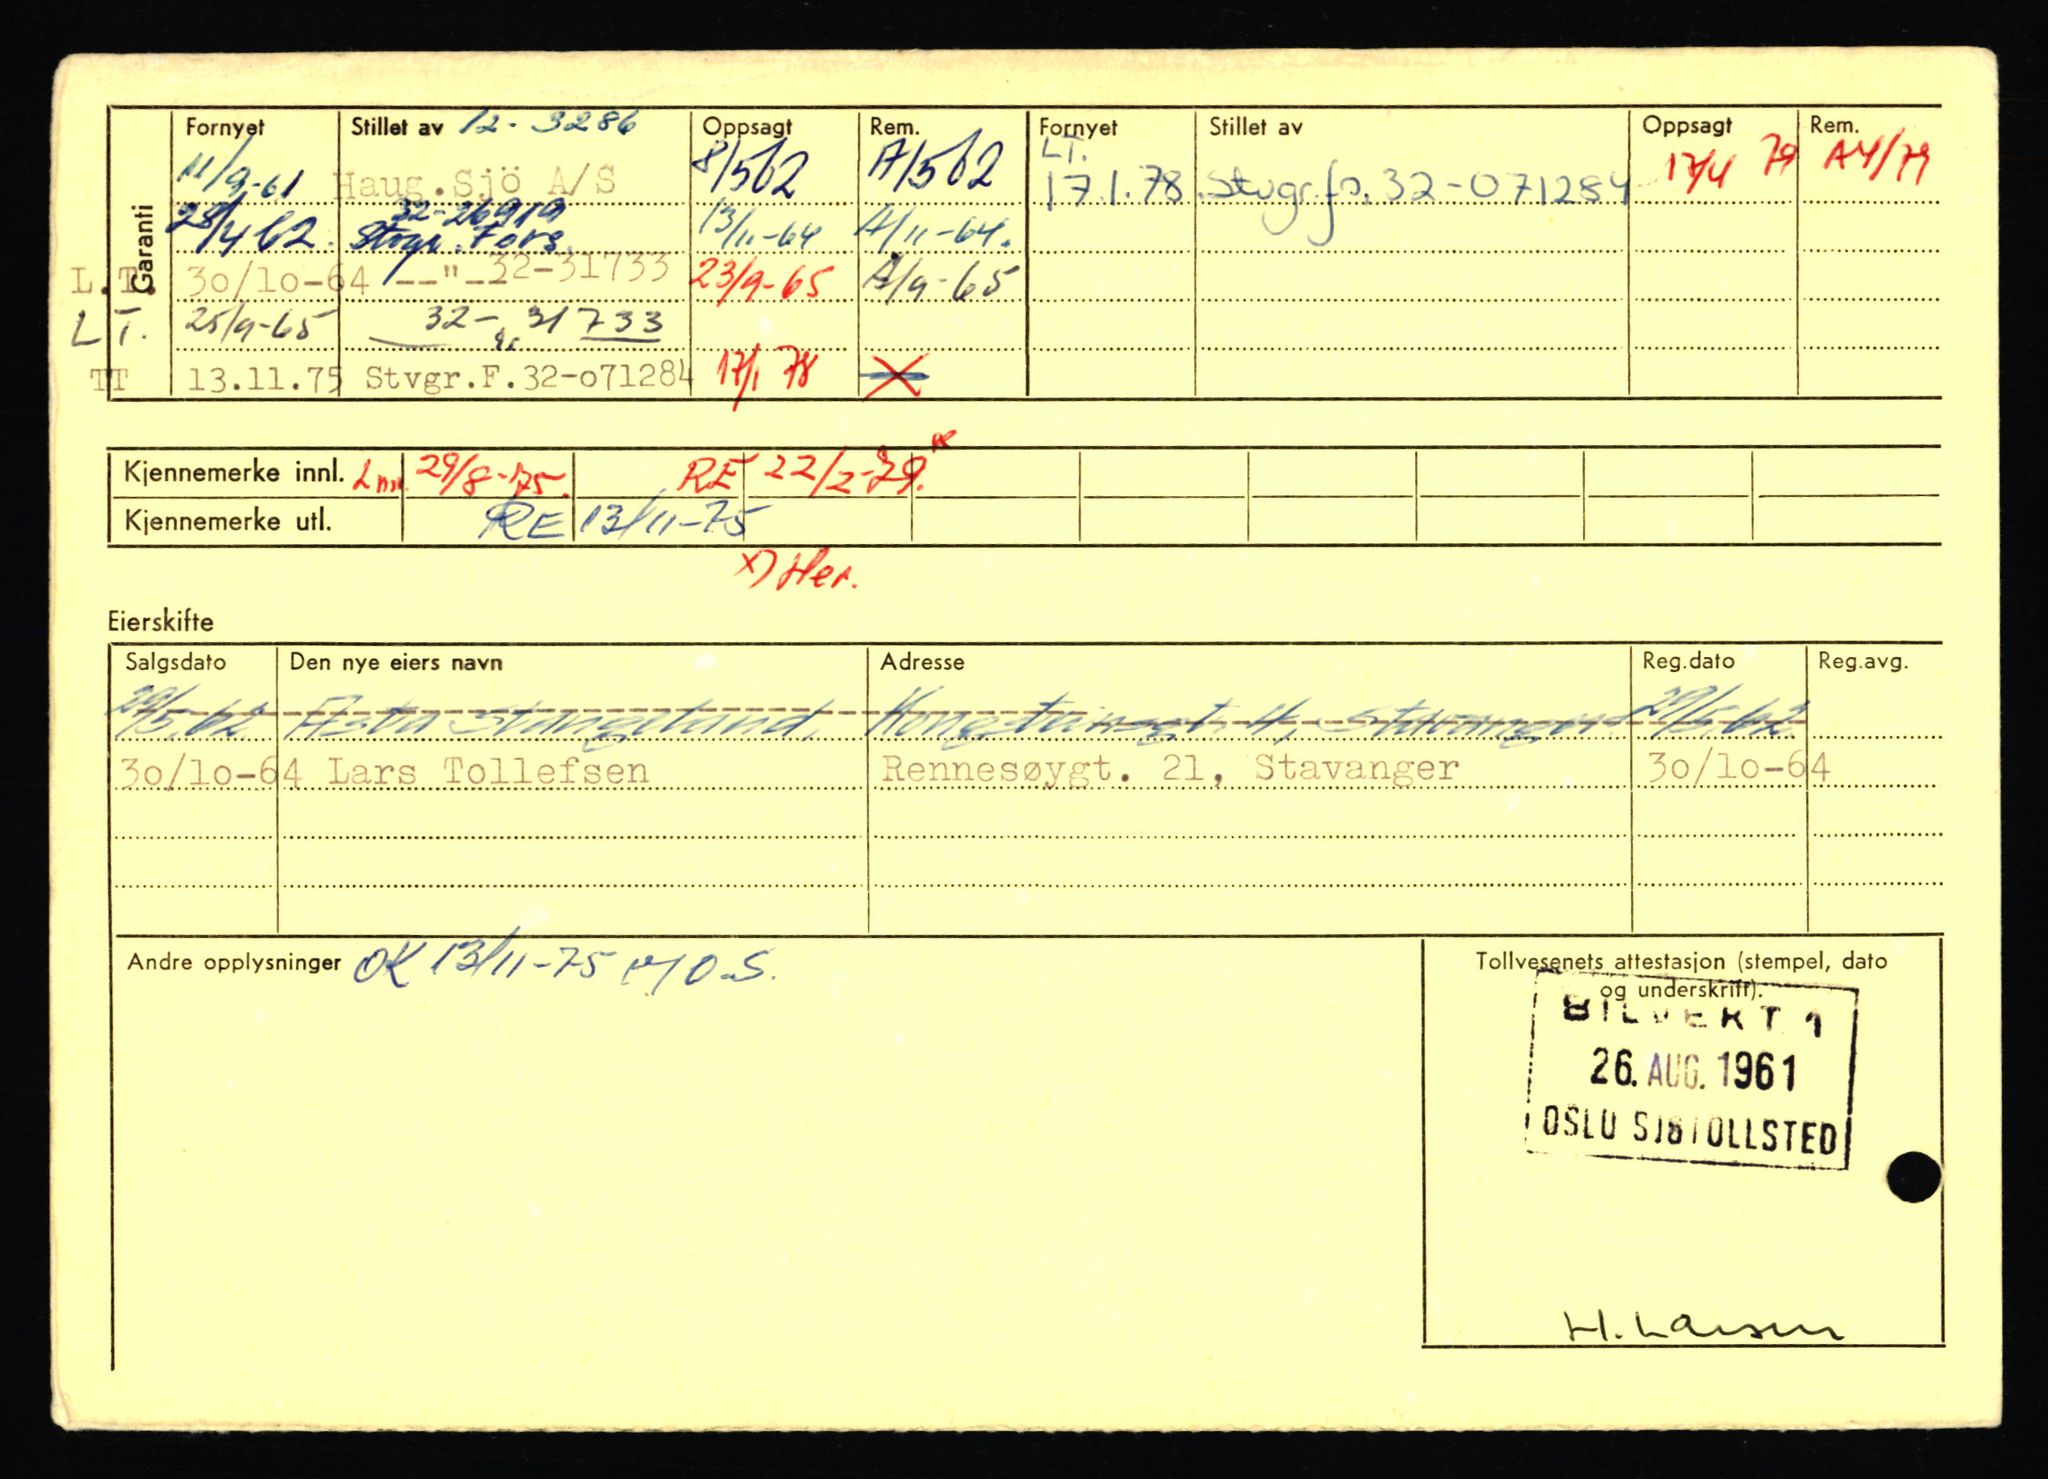 Garanti
Fornyet Stillet av 12-3286 Oppsagt Rem. Fornyet Stillet av Oppsagt Rem.
11/9-61 Haug.Sjö A/S 8/5 62 A/5 62 LT. 17.1.78. Stvgr.fo. 32-071284 17/4 79 A4/79
28/4 62. 32-26919 Stvgr. Fors. 13/11-64 A/11-64.
L.T. 30/10-64 --"-- 32-31733 23/9-65 A/9-65
L T. 25/9-65 32-31733
TT 13.11.75 Stvgr.F.32-o71284 17/1 78
Kjennemerke innl. 29/8-75. RE 22/2-79. x
Kjennemerke utl. RE 13/11-75
x) Her.
Eierskifte
Salgsdato Den nye eiers navn Adresse Reg.dato Reg.avg.
29/5.62 Asta Stangeland. Kongsteinsgt. 4, Stavanger. 29/5.62
3o/lo-64 Lars Tollefsen Rennesøygt. 21, Stavanger 3o/lo-64
Andre opplysninger OK 13/11-75 O.S.
Tollvesenets attestasjon (stempel, dato
og underskrift).
BILVERT 1
26. AUG. 1961
OSLO SJØTOLLSTED
H. Larsen